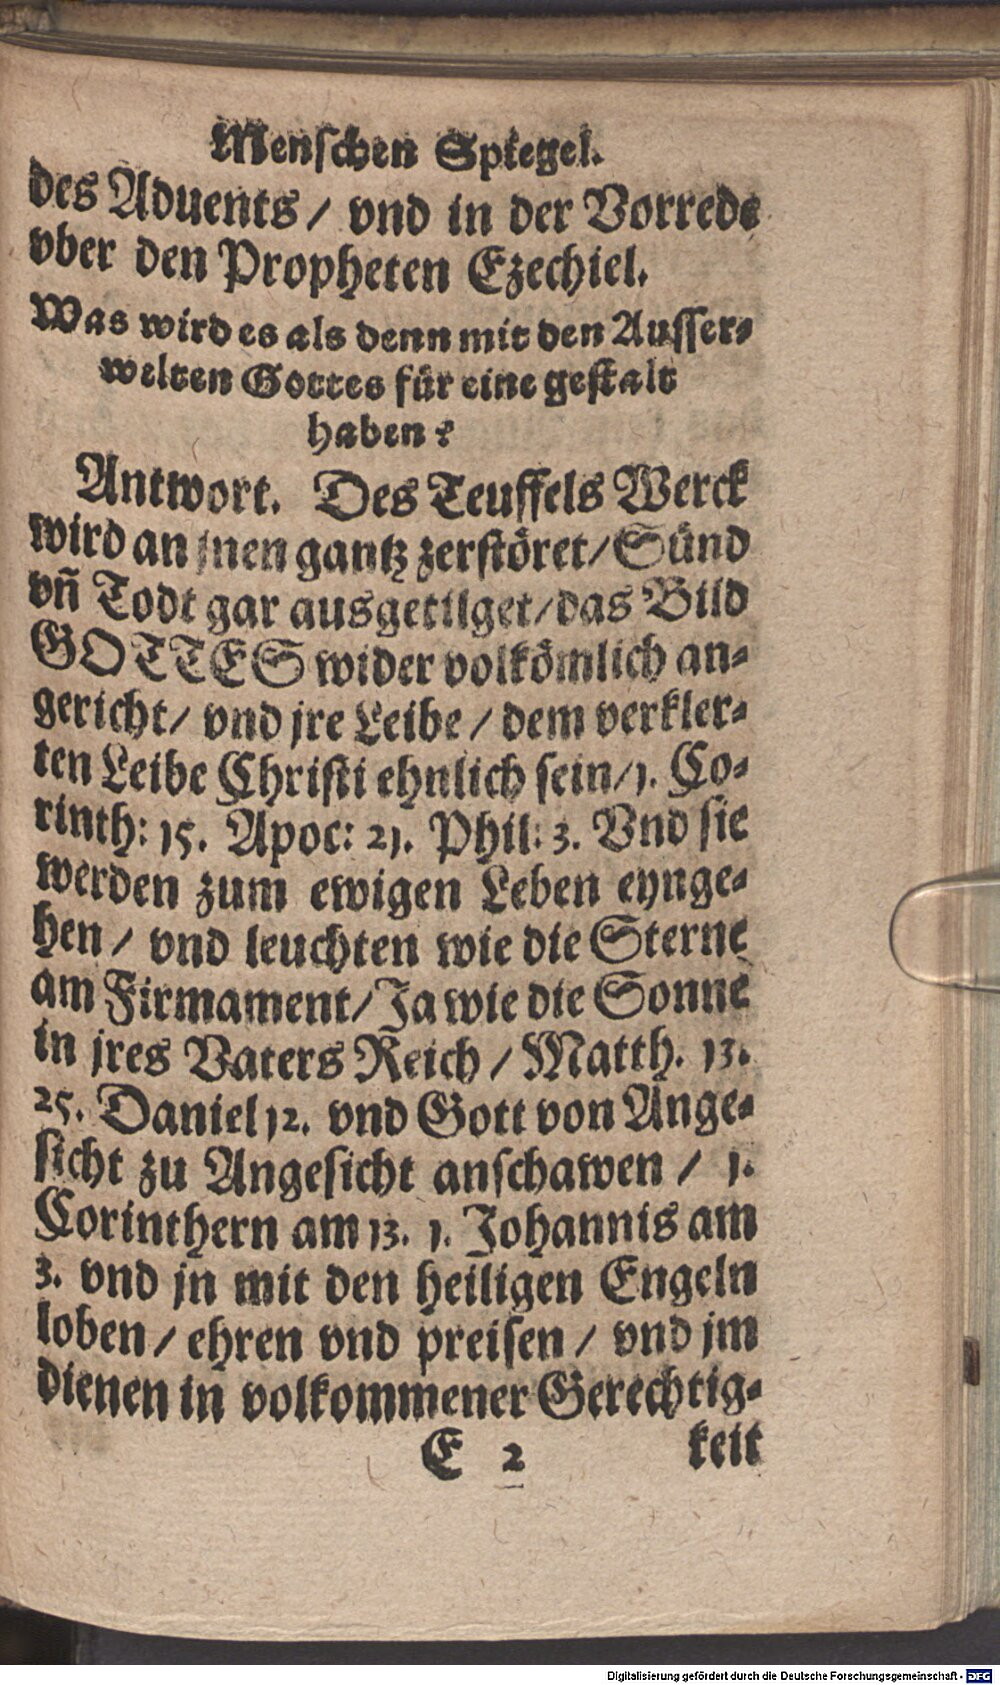 Menschen Spiegel.
des Aduents / vnd in der Vorrede
vber den Propheten Ezechiel.
Was wird es als denn mit den Ausser-
welten Gottes für eine gestalt
haben?
Antwort. Des Teuffels Werck
wird an jnen gantz zerstöret / Sünd
vñ Todt gar ausgetilget / das Bild
GOTTES wider volkömlich an-
gericht / vnd jre Leibe / dem verkler-
ten Leibe Christi ehnlich sein / 1. Co-
rinth: 15. Apoc: 21. Phil: 3. Vnd sie
werden zum ewigen Leben eynge-
hen / vnd leuchten wie die Sterne
am Firmament / Ja wie die Sonne
in jres Vaters Reich / Matth. 13.
25. Daniel 12. vnd Gott von Ange-
sicht zu Angesicht anschawen / 1.
Corinthern am 13. 1. Johannis am
3. vnd jn mit den heiligen Engeln
loben / ehren vnd preisen / vnd jm
dienen in volkommener Gerechtig-
E 2 keit
Digitalisierung gefördert durch die Deutsche Forschungsgemeinschaft - DFG